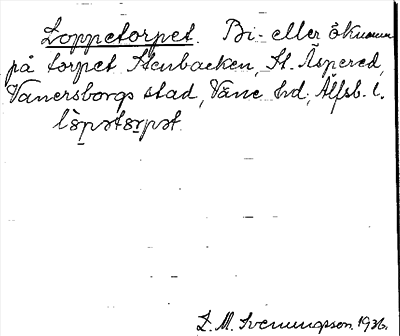 Loppetorpet. Bi- eller öknamn
på torpet Stenbacken, St. Äspered,
Vänersborgs stad, Väne hd, Älfsb. l.
lòpətårpət.
L. M. Svenungsson. 1936.